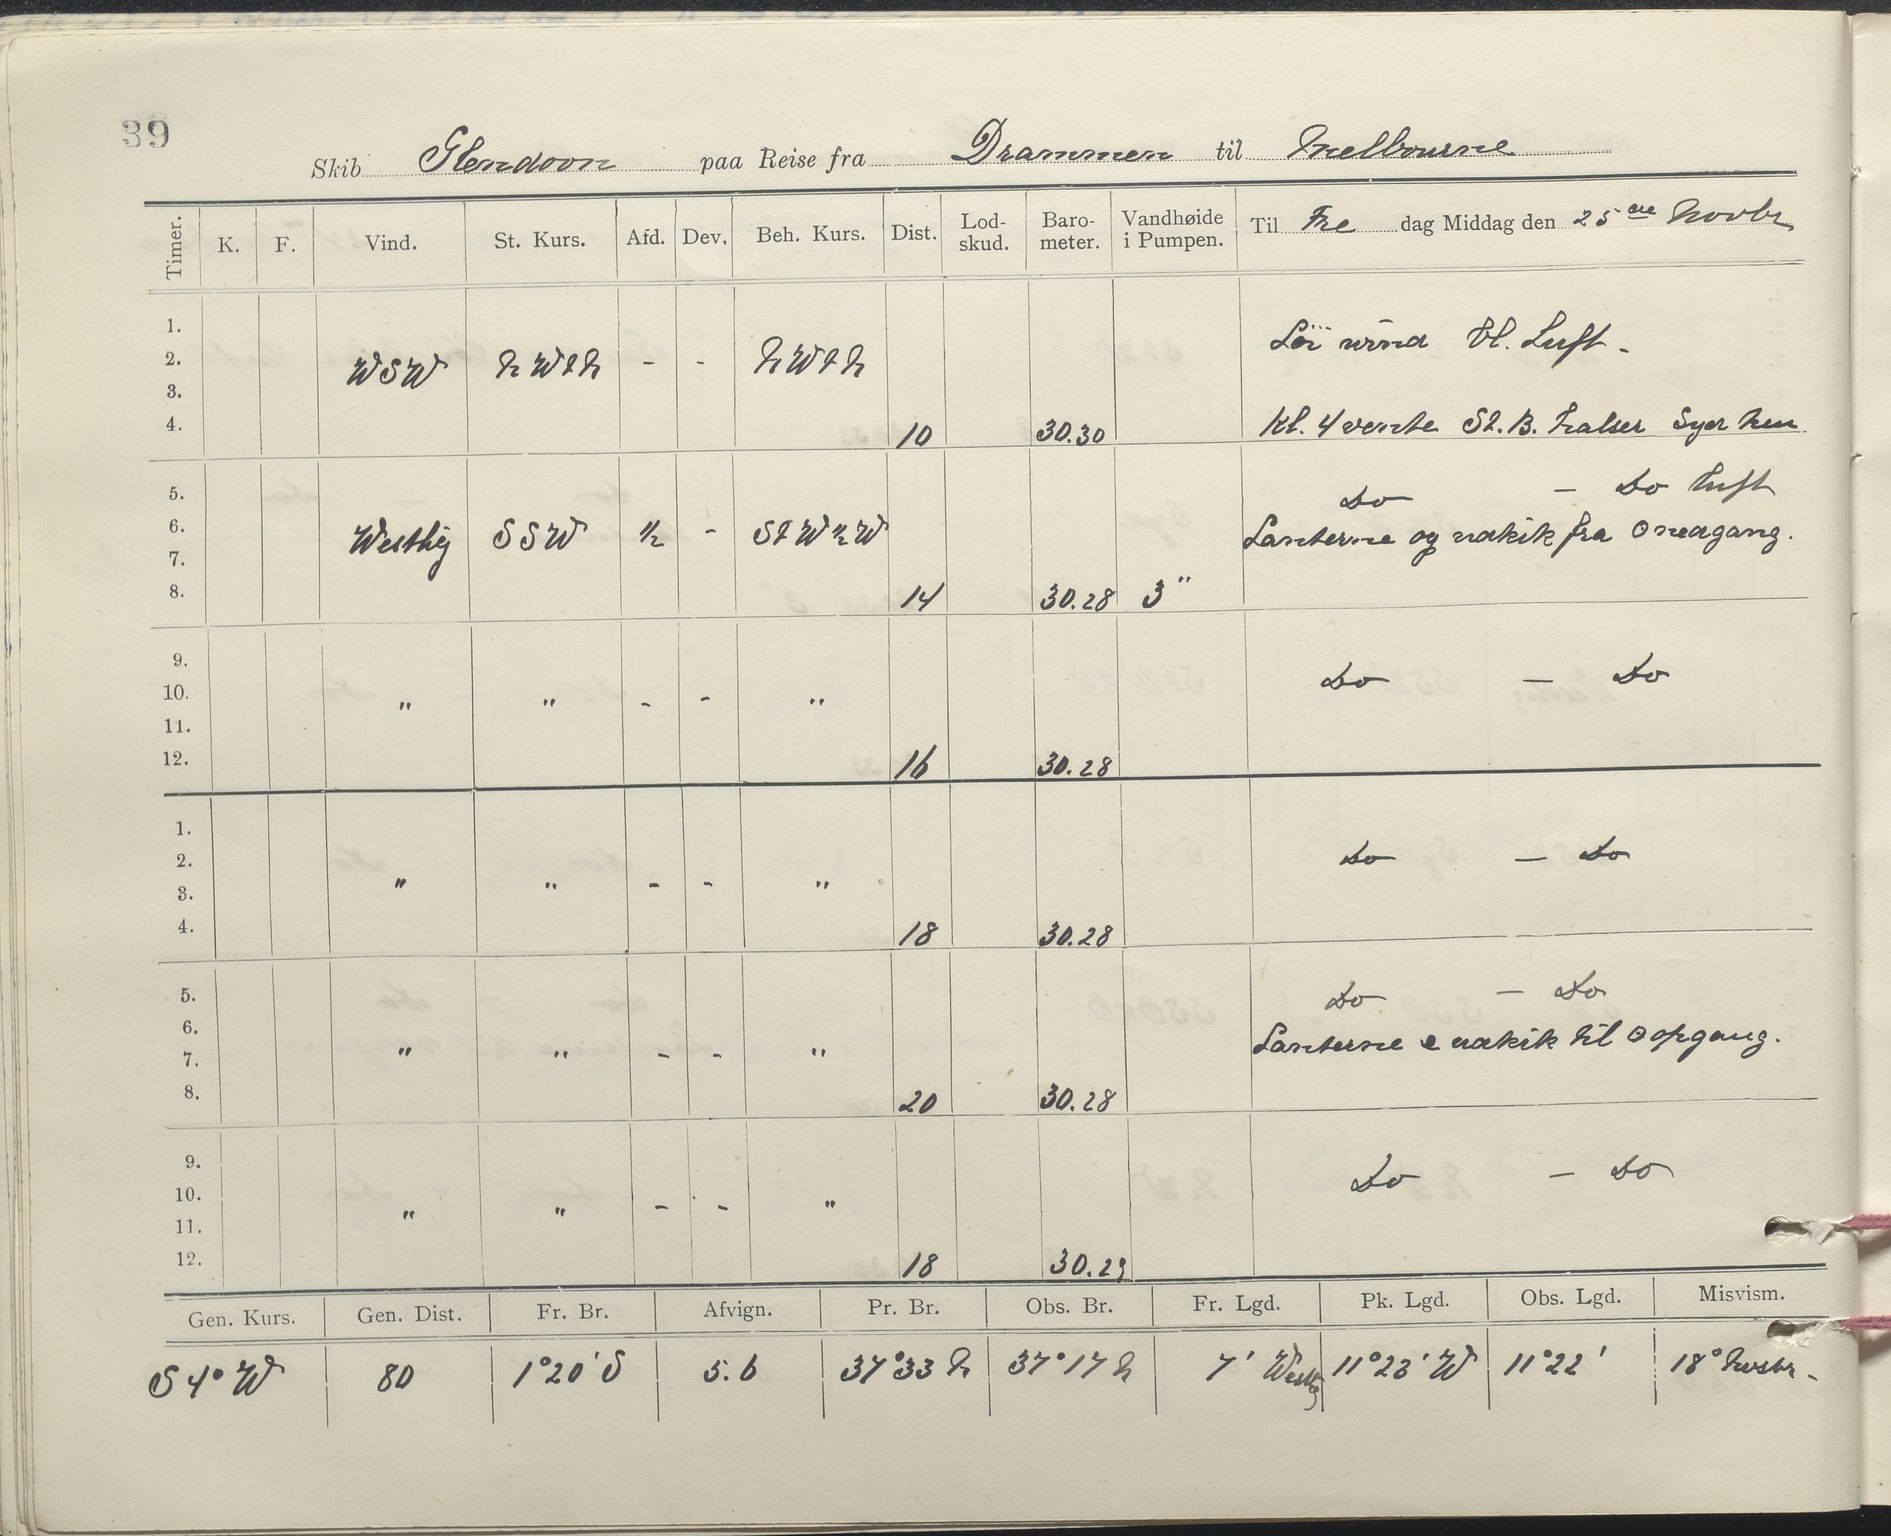 39
Skib Glendoon paa Reise fra Drammen til Melbourne
Timer. K. F. Vind. St. Kurs. Afd. Dev. Beh. Kurs. Dist. Lod-skud. Baro-meter. Vandhøide i Pumpen. Til Fre dag Middag den 25 Novbr
1. Löi vind Kl. Luft -
2. WSW NWtN - - NWtN
3.
4. 10 30.30 Kl. 4 vendte St. B. halser Syd hen
5. Do - Do luft
6. Westlig SSW ½ - StW½W Lanterne og udkik fra O nedgang.
7.
8. 14 30.28 3"
9. Do - Do
10. " " - - "
11.
12. 16 30.28
1.
2. Do - Do
3. " " - - "
4. 18 30.28
5. Do - Do
6. Lanterne e udkik til O opgang.
7. " " - - "
8. 20 30.28
9. Do - Do
10. " " - - "
11.
12. 18 30.29
Gen. Kurs. Gen. Dist. Fr. Br. Afvign. Pr. Br. Obs. Br. Fr. Lgd. Pk. Lgd. Obs. Lgd. Misvism.
S 4° W 80 1°20' S 5.6 37°33 N 37°17 N 7' Westlig 11°23' W 11°22' 18°